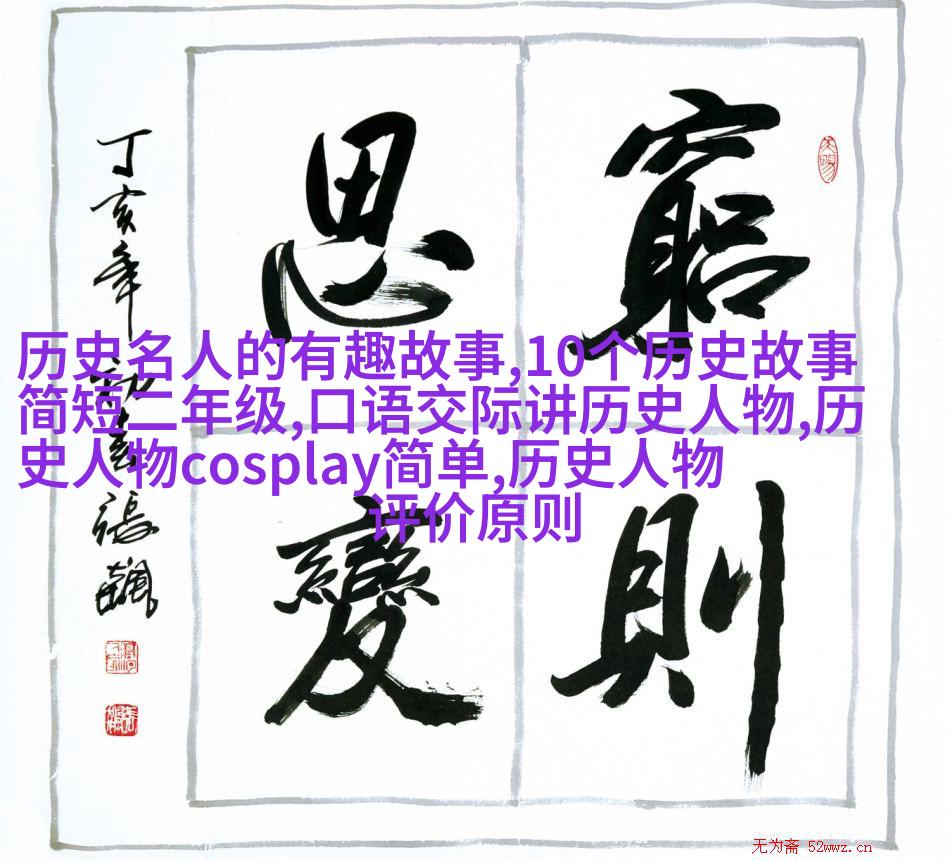 窮
則
思
變
丁亥年
張飆
历史名人的有趣故事,10个历史故事
简短二年级,口语交际讲历史人物,历
史人物cosplay简单,历史人物
评价原则
无为斋 52wwz.cn